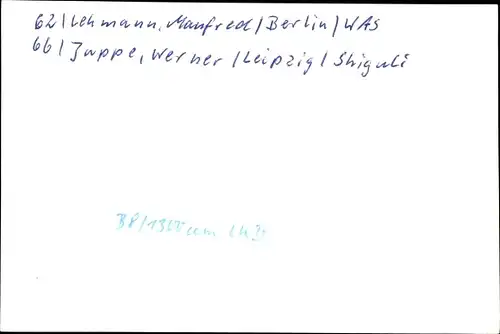 62/Lehmann, Manfred/Berlin/WAS
66/Juppe, Werner/Leipzig/Shiguli
B8/1300ccm